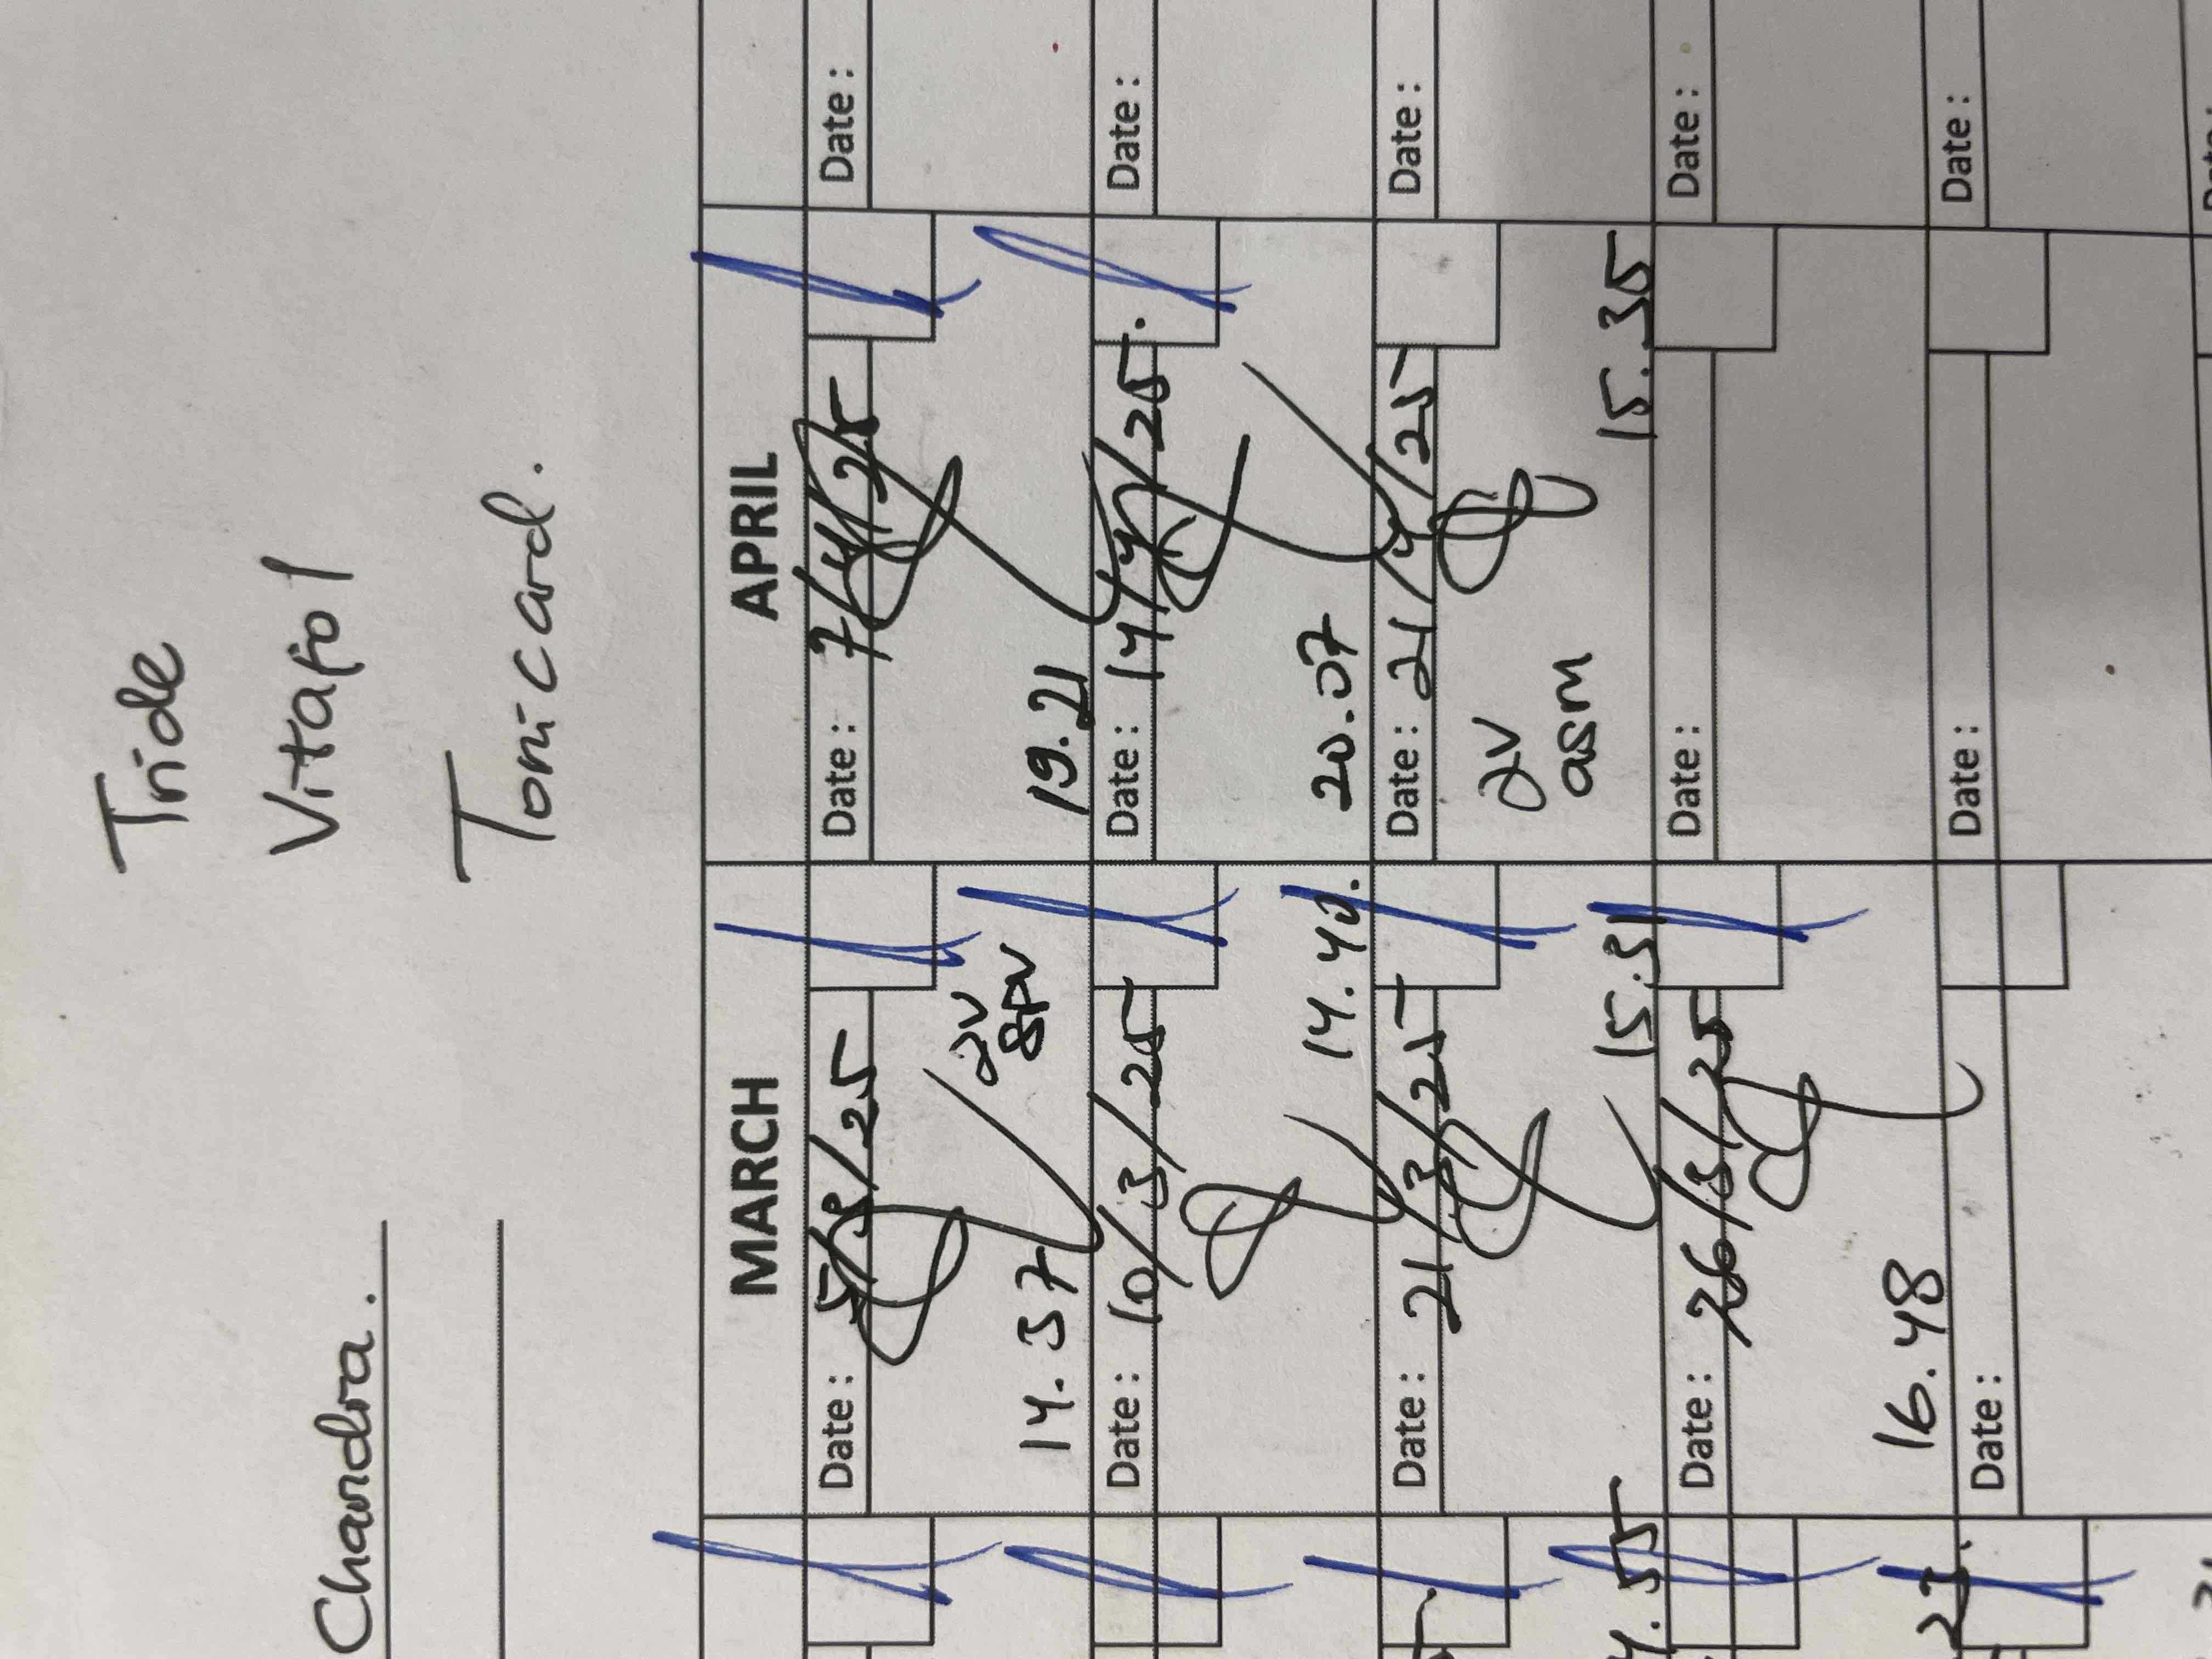 Tride
Vitafol
Tonicard.
Chandra.
MARCH
APRIL
Date : 5/3/25
2V
SPV
14.37
Date : 7/4/25
19.21
Date :
Date : 10/3/25
14.40.
Date : 14/4/25.
20.07
Date :
Date : 21/3/25
15.31
Date : 21/4/25
2V
asm
15.35
Date :
4.55
Date : 26/3/25
16.48
Date :
Date :
Date :
Date :
Date :